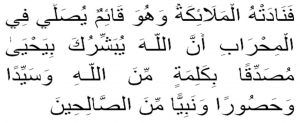 فَنَادَتْهُ الْمَلَائِكَةُ وَهُوَ قَائِمٌ يُصَلِّي فِي
الْمِحْرَابِ أَنَّ اللَّهَ يُبَشِّرُكَ بِيَحْيَىٰ
مُصَدِّقًا بِكَلِمَةٍ مِّنَ اللَّهِ وَسَيِّدًا
وَحَصُورًا وَنَبِيًّا مِّنَ الصَّالِحِينَ